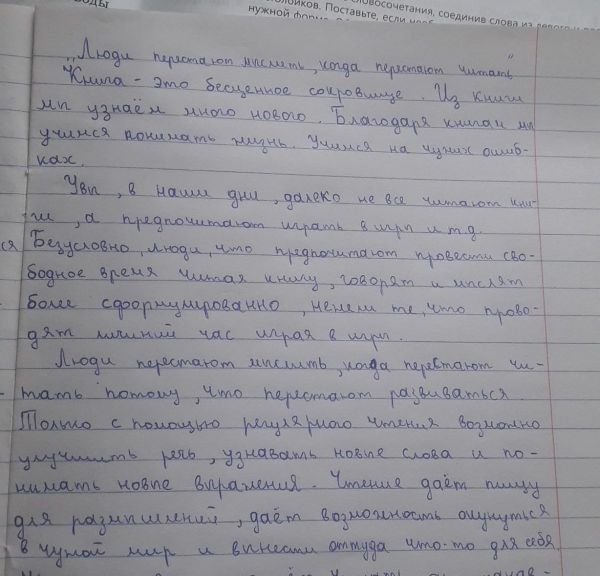 словосочетания, соединив слова из левого и
нужной форме. Поставьте, если
„Люди перестают мыслить, когда перестают читать"
Книга - это бесценное сокровище. Из книги
мы узнаём много нового. Благодаря книгам мы
учимся понимать жизнь. Учимся на чужих ошиб-
ках.
Увы, в наши дни, далеко не все читают кни-
ги, а предпочитают играть в игры и т.д.
ся
Безусловно, люди, что предпочитают провести сво-
бодное время читая книгу, говорят и мыслят
более сформулированно, нежели те, что прово-
дят лишний час играя в игры.
Люди перестают мыслить, когда перестают чи-
тать потому, что перестают развиваться.
Только с помощью регулярного чтения возможно
улучшить речь, узнавать новые слова и по-
нимать новые выражения. Чтение даёт пищу
для размышлений, даёт возможность окунуться
в чужой мир и вынести оттуда что-то для себя.